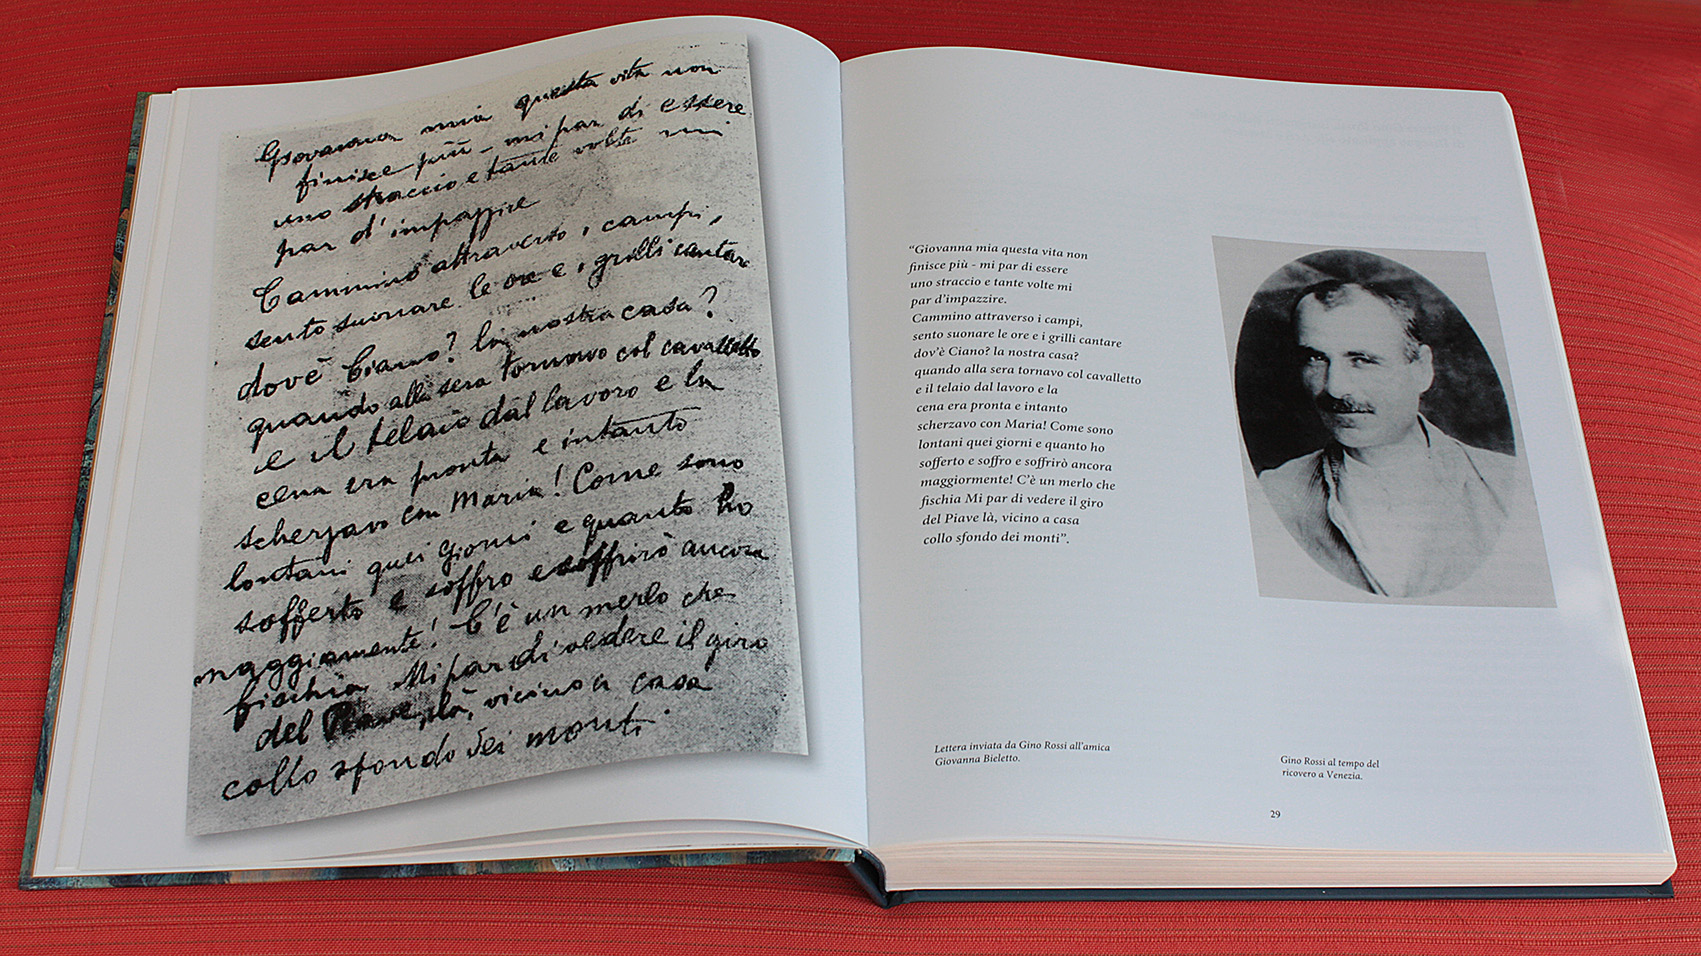 Giovanna mia questa vita non
finisce più - mi par di essere
uno straccio e tante volte mi
par d'impazzire
Cammino attraverso i campi,
sento suonare le ore e i grilli cantare
dov'è Ciano? la nostra casa?
quando alla sera tornavo col cavalletto
e il telaio dal lavoro e la
cena era pronta e intanto
scherzavo con Maria! Come sono
lontani quei giorni e quanto ho
sofferto e soffro e soffrirò ancora
maggiamente! C'è un merlo che
fischia Mi par di vedere il giro
del Piave, là, vicino a casa
collo sfondo dei monti.
“Giovanna mia questa vita non
finisce più - mi par di essere
uno straccio e tante volte mi
par d'impazzire.
Cammino attraverso i campi,
sento suonare le ore e i grilli cantare
dov'è Ciano? la nostra casa?
quando alla sera tornavo col cavalletto
e il telaio dal lavoro e la
cena era pronta e intanto
scherzavo con Maria! Come sono
lontani quei giorni e quanto ho
sofferto e soffro e soffrirò ancora
maggiormente! C'è un merlo che
fischia Mi par di vedere il giro
del Piave là, vicino a casa
collo sfondo dei monti”.
Lettera inviata da Gino Rossi all'amica
Giovanna Bieletto.
Gino Rossi al tempo del
ricovero a Venezia.
29